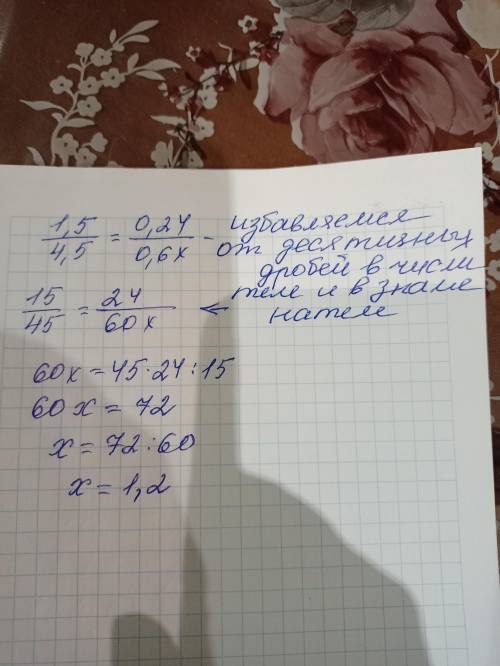 1,5/4,5 = 0,24/0,6x - избавляемся
от десятичных
дробей в числи
теле и в знаме
нателе
15/45 = 24/60x ←
60x = 45·24:15
60x = 72
x = 72:60
x = 1,2